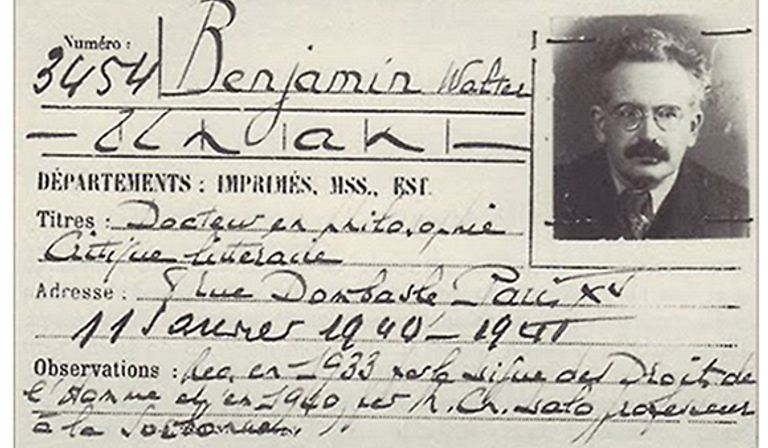 Numéro :
3454 Benjamin Walter
— Un an —
DÉPARTEMENTS : IMPRIMÉS, MSS., EST.
Titres : Docteur en philosophie
Critique littéraire
Adresse : rue Dombasle Paris XV
11 Janvier 1940 - 1941
Observations : Rec. en 1933 par la Ligue des Droits de
l'Homme et en 1940 par M. Ch. Lalo professeur
à la Sorbonne.